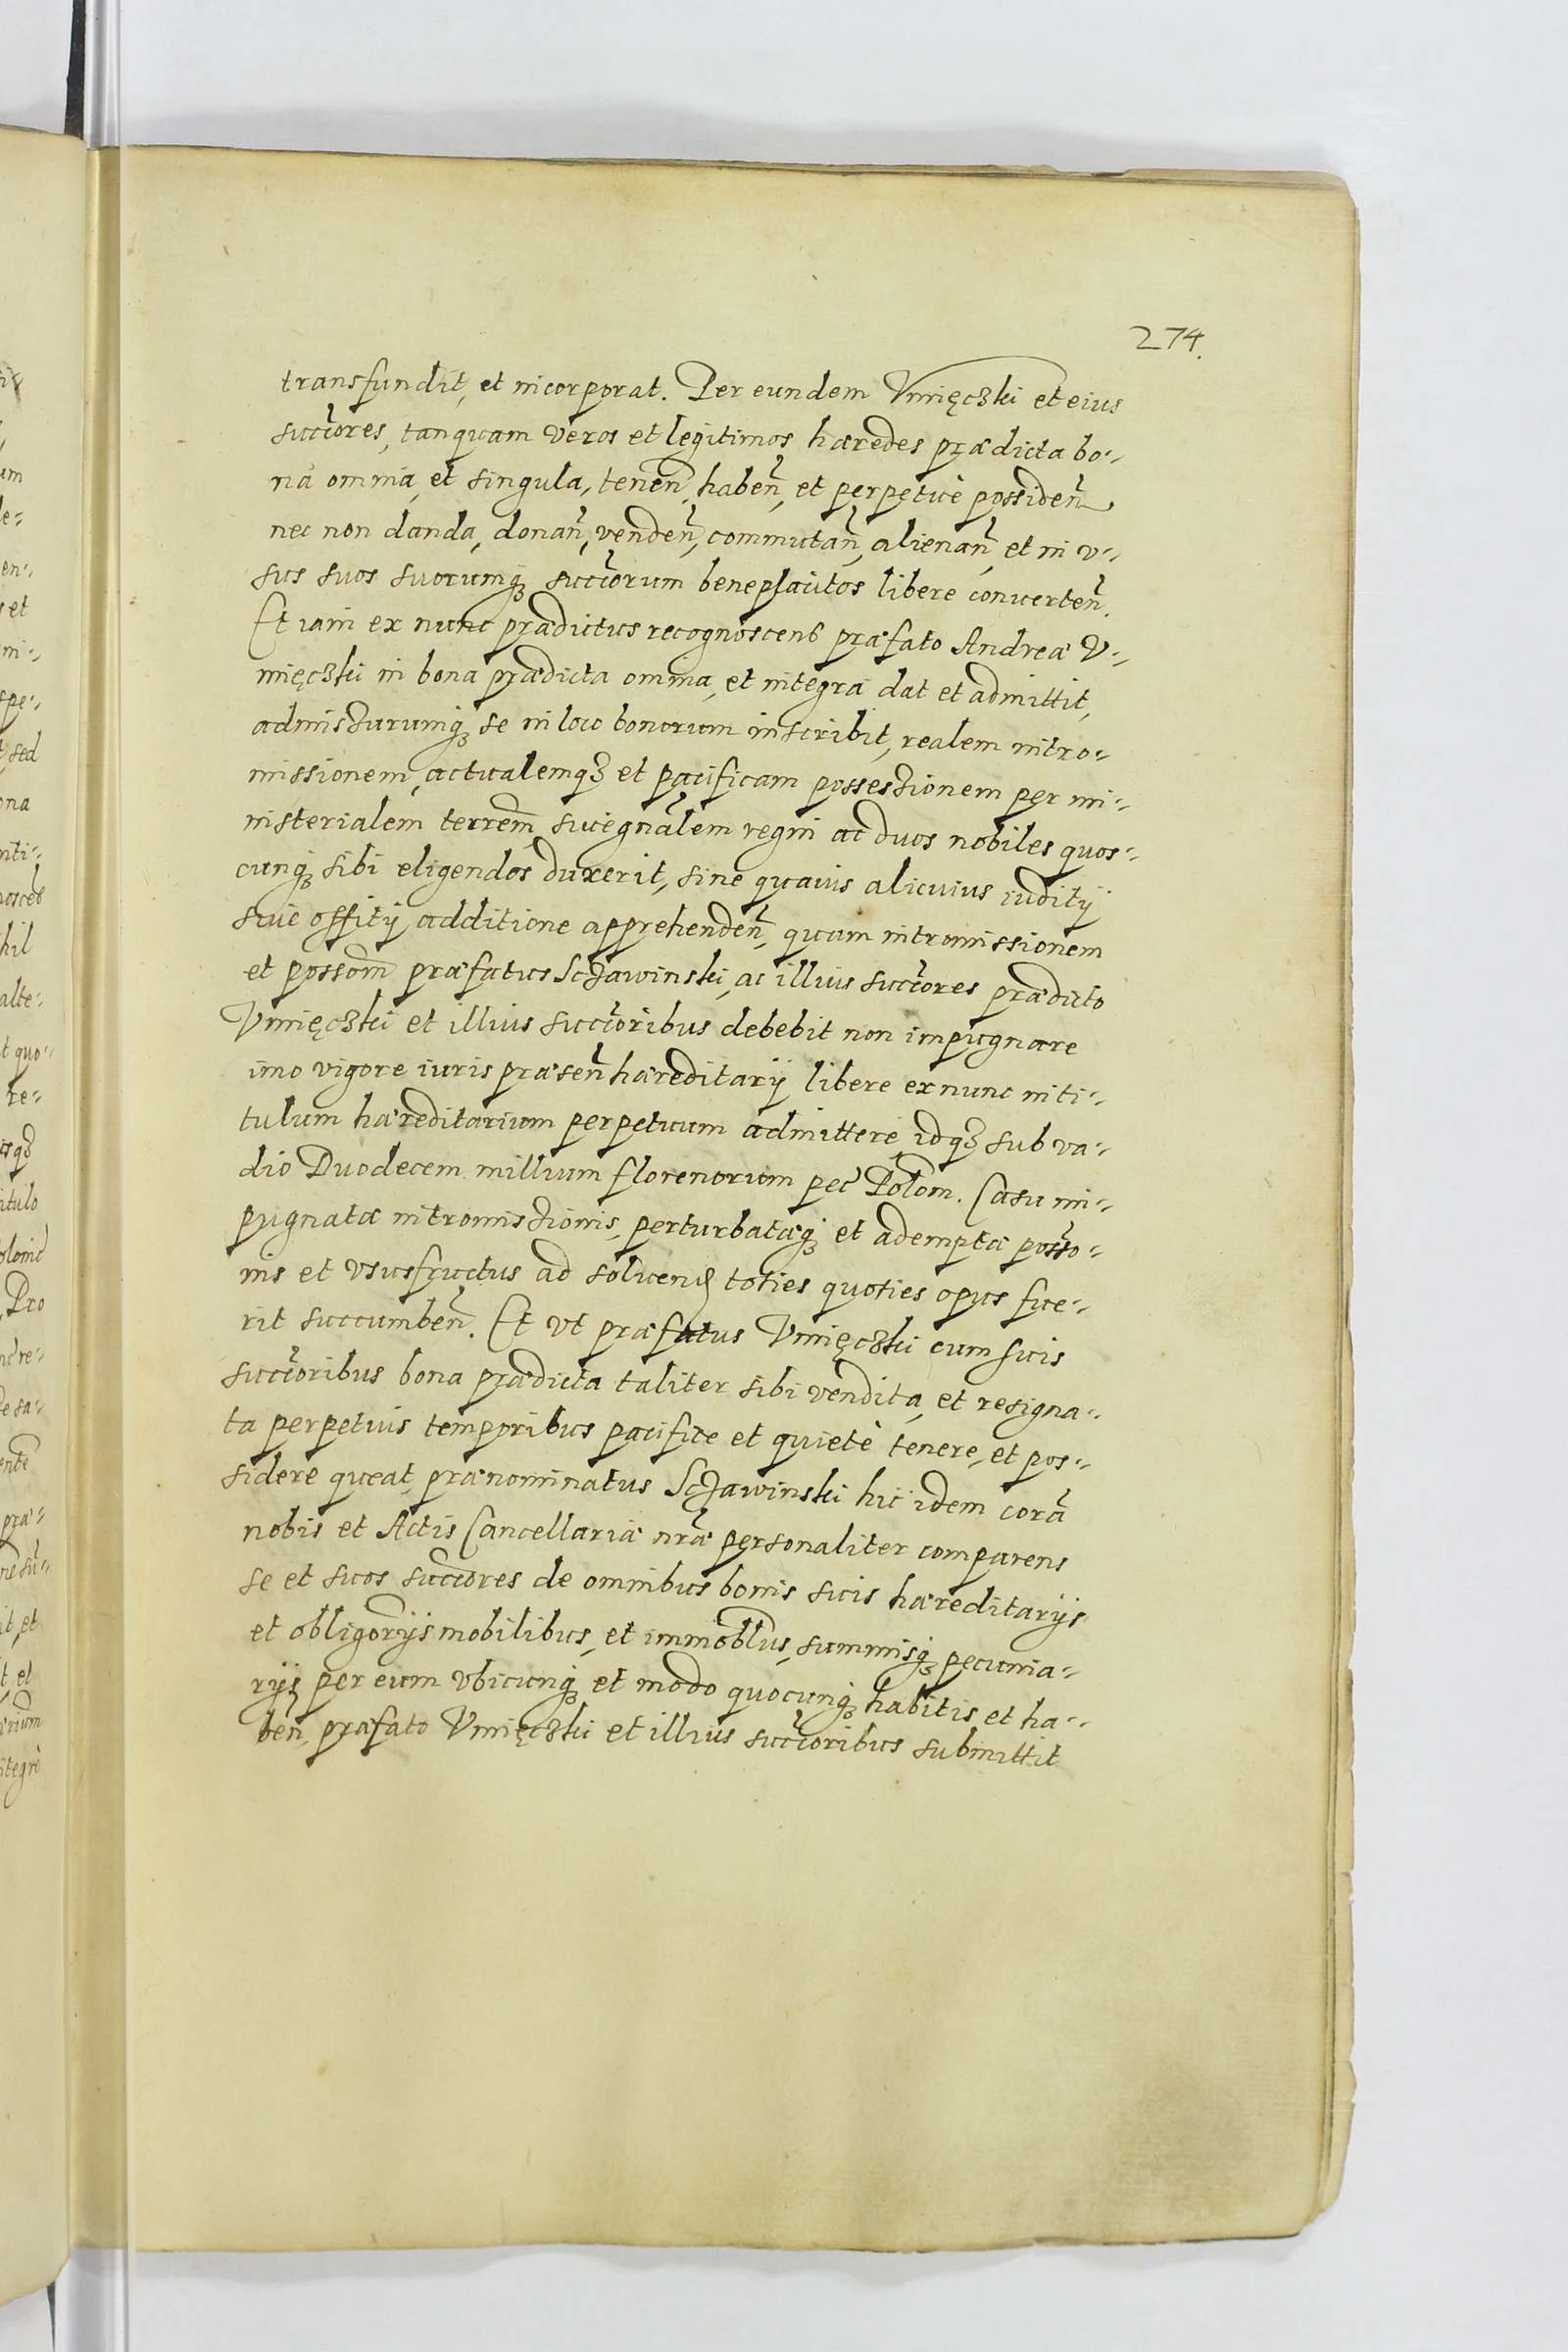 274.
transfundit, et incorporat. Per eundem Vmięczki et eius
succores, tanquam veros et legitimos hæredes prædicta bo-
na omnia, et singula, tenen̄, haben̄, et perpetuè possiden̄
nec non danda, donan̄, venden̄, commutan̄, alienan̄, et in v-
sus suos suorumq3 succorum beneplacitos libere conuerten̄.
Et iam ex nunc prædictus recognoscens præfato Andreæ V-
mięczki in bona prædicta omnia, et integra dat et admittit,
admissurumq3 se in loco bonorum inscribit, realem intro-
missionem, actualemq3 et pacificam possessionem per mi-
nisterialem terrem̄, sue gnālem regni ac duos nobiles quos-
cunq3 sibi eligendos duxerit, sine quauis alicuius iuditij
siue offitij additione apprehenden̄, quam intromissionem
et possom̄ præfatus Scjawinski, ac illius succores prædicto
Vmięczki et illius succoribus debebit non impugnare
imo vigore iuris præsen̄ hæreditarij libere ex nunc in ti-
tulum hæreditarium perpetuum admittere, idq3 sub va-
dio Duodecem millium florenorum pec̄ Polom̄. Casu im-
pugnatæ intromissionis, perturbatæq3 et ademptæ posso-
nis et vsusfructus ad soluend toties quoties opus fue-
rit succumben̄. Et vt præfatus Vmięczki cum suis
succoribus bona prædicta taliter sibi vendita, et resigna-
ta perpetuis temporibus pacifice et quietè tenere, et pos-
sidere queat, prænominatus Scjawinski hic idem corā
nobis et Actis Cancellariæ nræ personaliter comparens
se et suos succores de omnibus bonis suis hæreditarijs
et obligorijs mobilibus, et immoblus, summisq3 pecunia-
rijs per eum vbicunq3 et modo quocunq3 habitis et ha-
ben̄, præfato Vmięczki et illius succoribus submittit